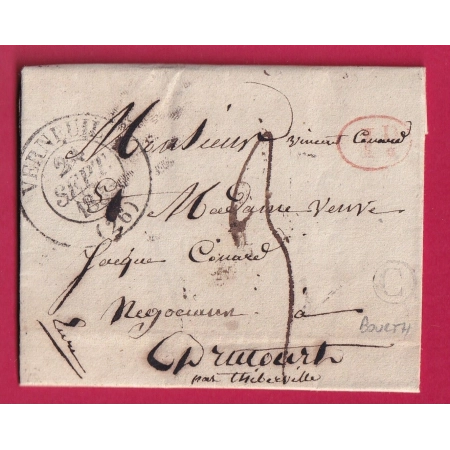 VERNEUIL
SEPT
(26)
Monsieur Vincent Couard
Madame veuve
Jacque Couard
Negociant à
Drucourt
par thiberville
Eure
C
BOURTH